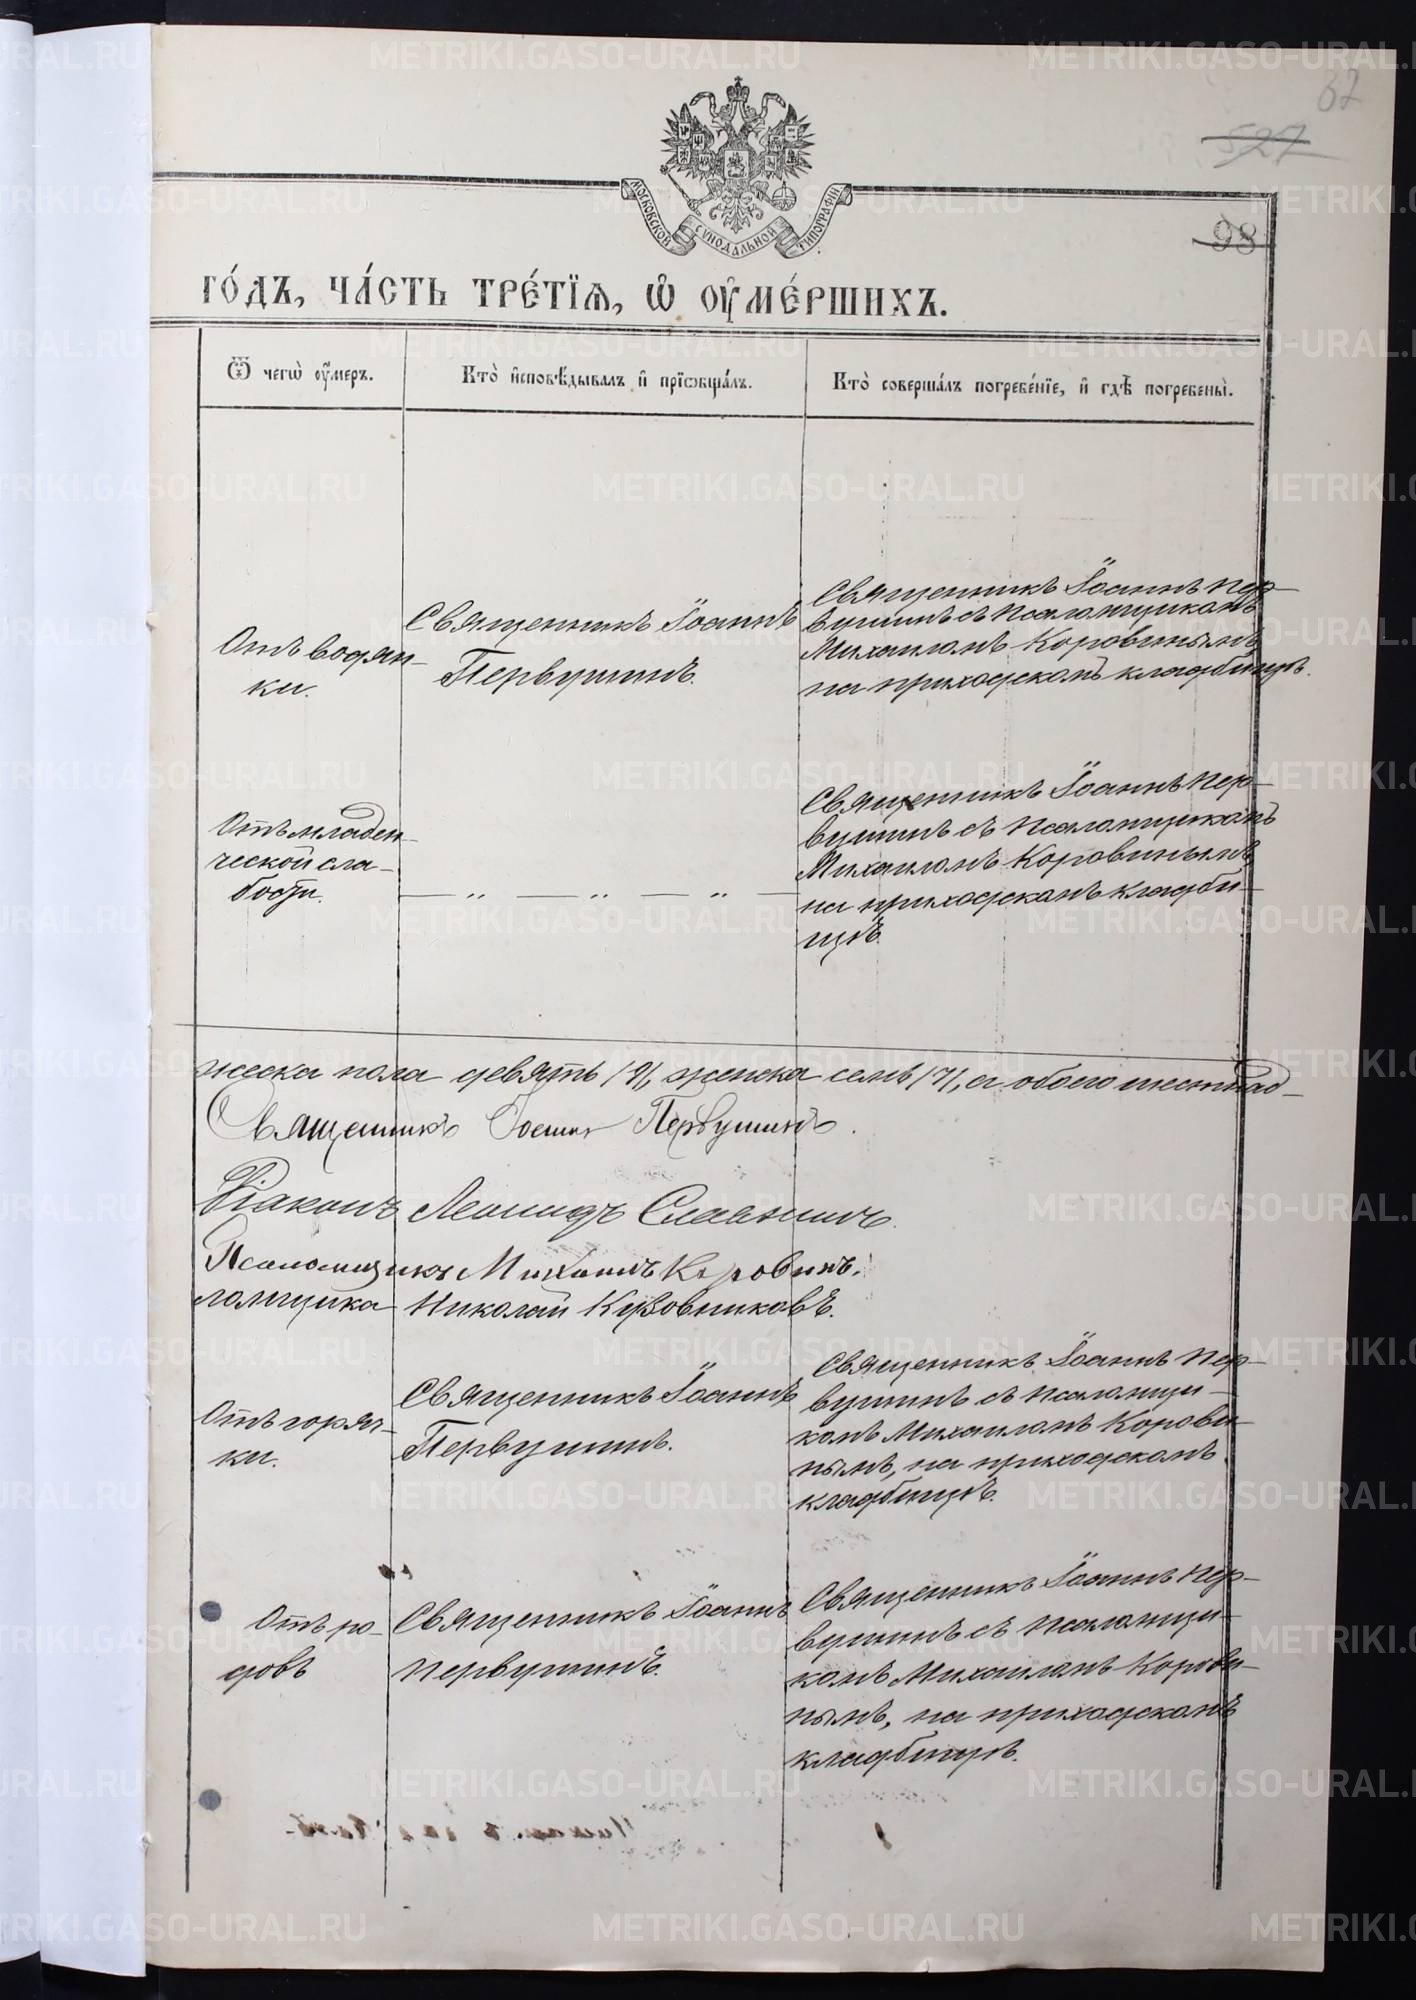 37
527
98
МОСКОВСКОЙ СѴНОДАЛЬНОЙ ТИПОГРАФІИ
ГО́ДЪ, ЧА́СТЬ ТРЕ́ТЇѦ, Ѡ҆ ОУ҆МЕ́РШИХЪ.
Ѿ чегѡ̀ оу҆́меръ.
Кто̀ и҆сповѣ́дывалъ и҆ прїѡбща́лъ.
Кто̀ соверша́лъ погребе́нїе, и҆ гдѣ̀ погребены̀.
Отъ водян-
ки.
Священникъ Іоаннъ
Первушинъ.
Священникъ Іоаннъ Пер-
вушинъ съ псаломщикомъ
Михаиломъ Коровинымъ
на приходскомъ кладбищѣ.
Отъ младен-
ческой сла-
бости.
— „ — „ — „ —
Священникъ Іоаннъ Пер-
вушинъ съ псаломщикомъ
Михаиломъ Коровинымъ
на приходскомъ кладби-
щѣ.
жеска пола девять /9/, женска семь /7/, а обоего шестнад-
Священникъ Іоаннъ Первушинъ.
Діаконъ Леонидъ Славнинъ.
Псаломщикъ Михаилъ Коровинъ.
ломщика Николай Кузовниковъ.
Отъ горяч-
ки.
Священникъ Іоаннъ
Первушинъ.
Священникъ Іоаннъ Пер-
вушинъ съ псаломщи-
комъ Михаиломъ Корови-
нымъ, на приходскомъ
кладбищѣ.
Отъ ро-
довъ
Священникъ Іоаннъ
Первушинъ.
Священникъ Іоаннъ Пер-
вушинъ съ псаломщи-
комъ Михаиломъ Корови-
нымъ, на приходскомъ
кладбищѣ.
METRIKI.GASO-URAL.RU